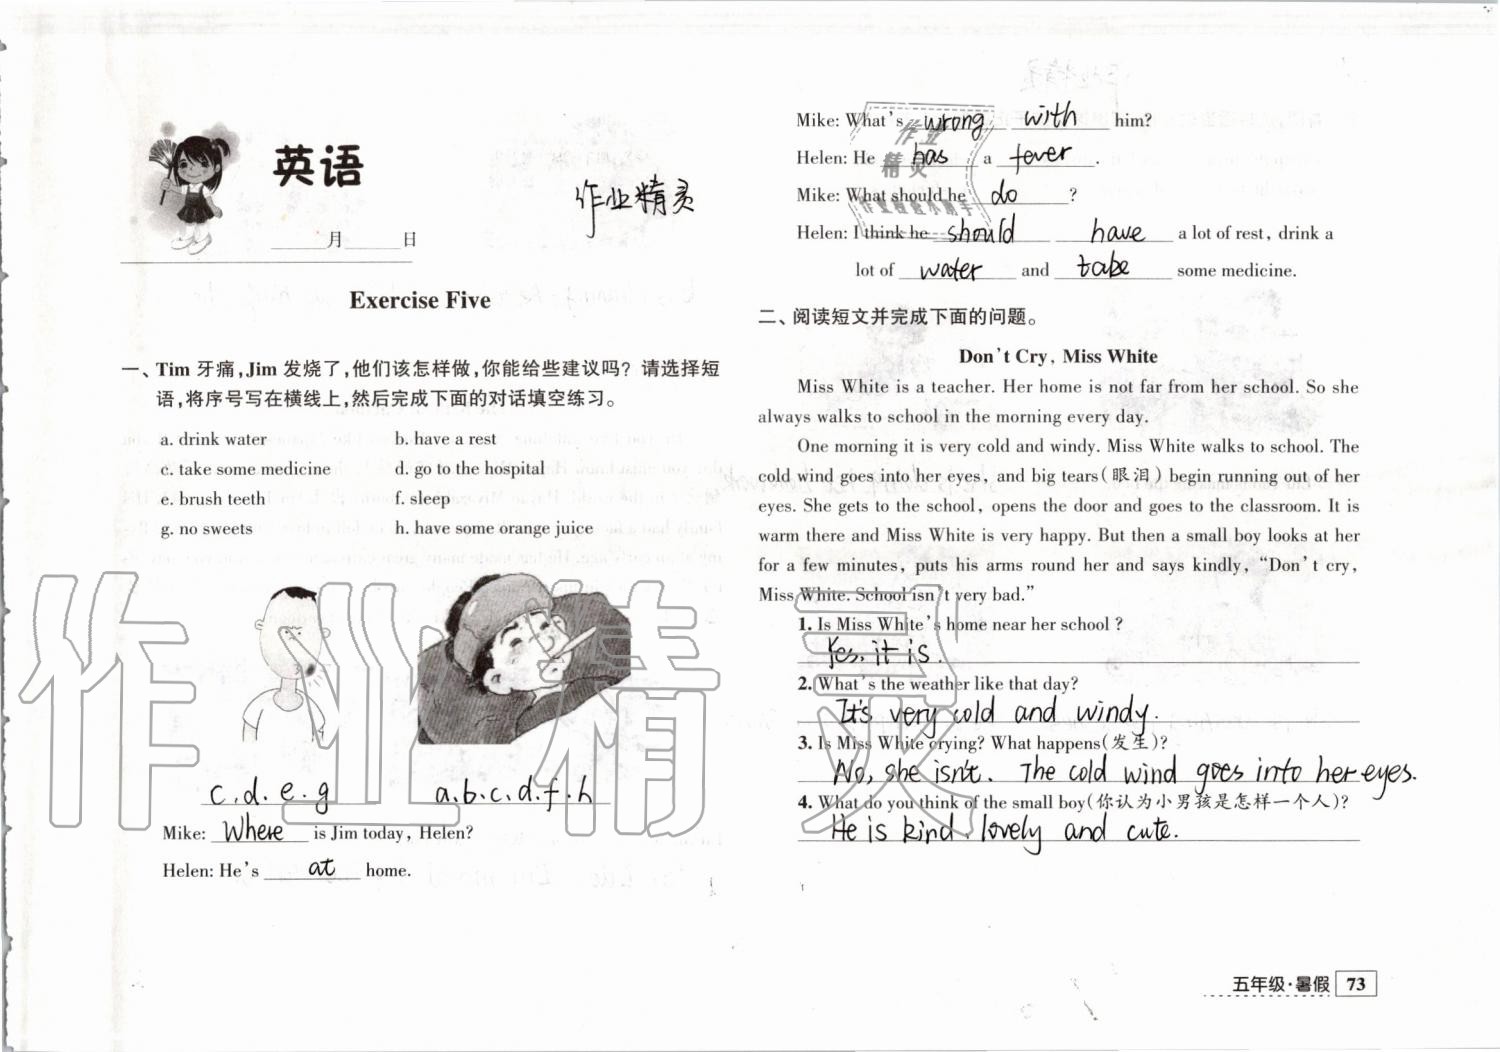 英语
作业精灵
月 日
Exercise Five
一、Tim 牙痛,Jim 发烧了,他们该怎样做,你能给些建议吗? 请选择短
语,将序号写在横线上,然后完成下面的对话填空练习。
a. drink water b. have a rest
c. take some medicine d. go to the hospital
e. brush teeth f. sleep
g. no sweets h. have some orange juice
c.d.e.g a.b.c.d.f.h
Mike: Where is Jim today, Helen?
Helen: He's at home.
Mike: What's wrong with him?
Helen: He has a fever.
Mike: What should he do ?
Helen: I think he should have a lot of rest, drink a
lot of water and take some medicine.
二、阅读短文并完成下面的问题。
Don't Cry, Miss White
Miss White is a teacher. Her home is not far from her school. So she
always walks to school in the morning every day.
One morning it is very cold and windy. Miss White walks to school. The
cold wind goes into her eyes, and big tears(眼泪) begin running out of her
eyes. She gets to the school, opens the door and goes to the classroom. It is
warm there and Miss White is very happy. But then a small boy looks at her
for a few minutes, puts his arms round her and says kindly, "Don't cry,
Miss White. School isn't very bad."
1. Is Miss White's home near her school?
Yes, it is.
2. What's the weather like that day?
It's very cold and windy.
3. Is Miss White crying? What happens(发生)?
No, she isn't. The cold wind goes into her eyes.
4. What do you think of the small boy(你认为小男孩是怎样一个人)?
He is kind, lovely and cute.
五年级·暑假 73
作业精灵
作业
精灵